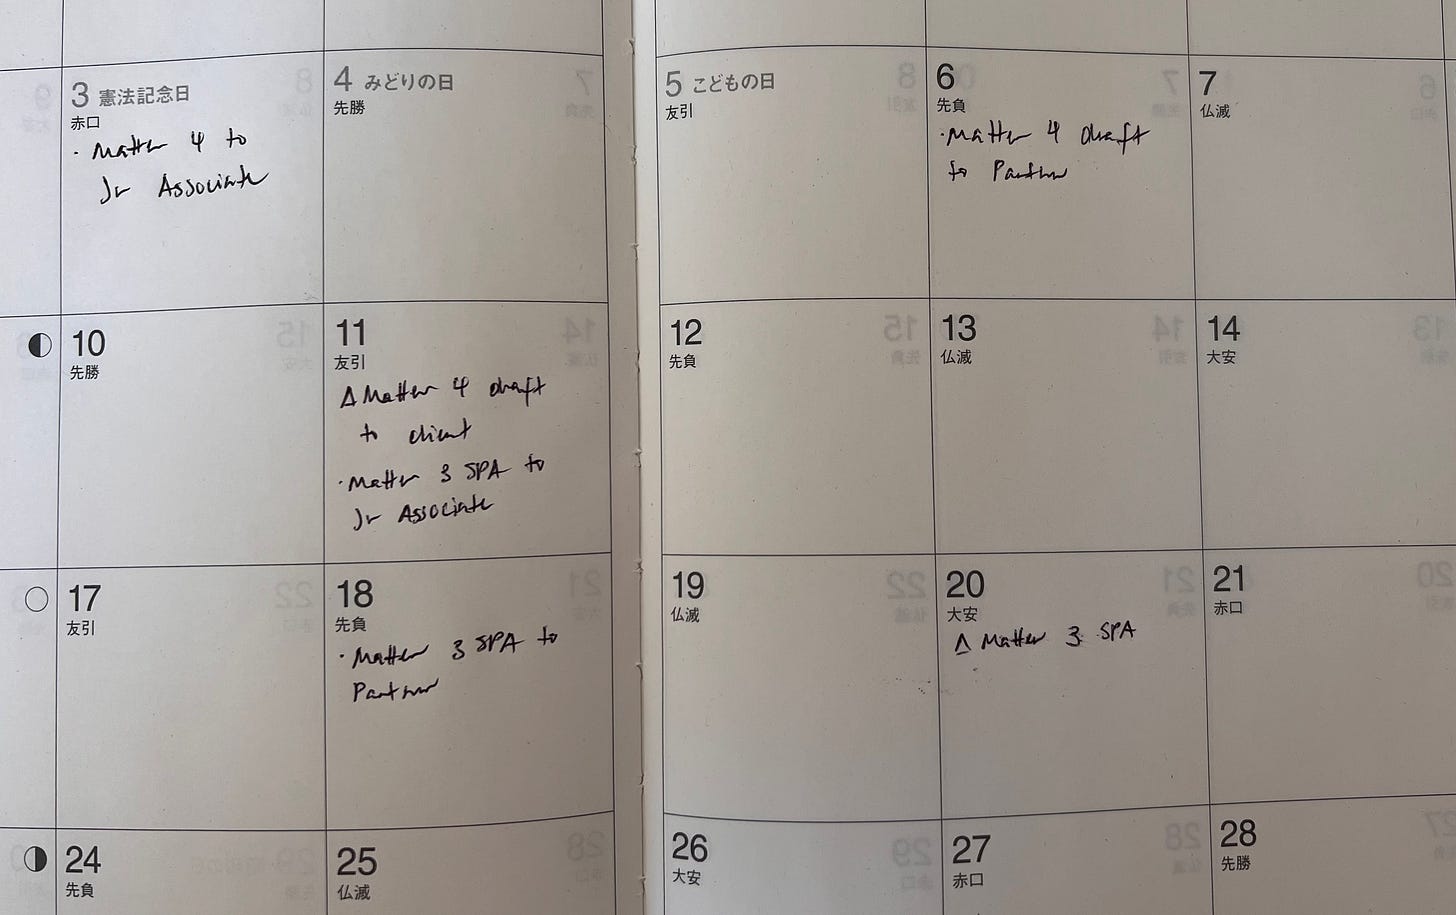 3 憲法記念日
赤口
· Matter 4 to
Jr Associate
4 みどりの日
先勝
5 こどもの日
友引
6
先負
· Matter 4 draft
to Partner
7
仏滅
10
先勝
11
友引
Δ Matter 4 draft
to client
· Matter 3 SPA to
Jr Associate
12
先負
13
仏滅
14
大安
17
友引
18
先負
· Matter 3 SPA to
Partner
19
仏滅
20
大安
Δ Matter 3 SPA
21
赤口
24
先負
25
仏滅
26
大安
27
赤口
28
先勝